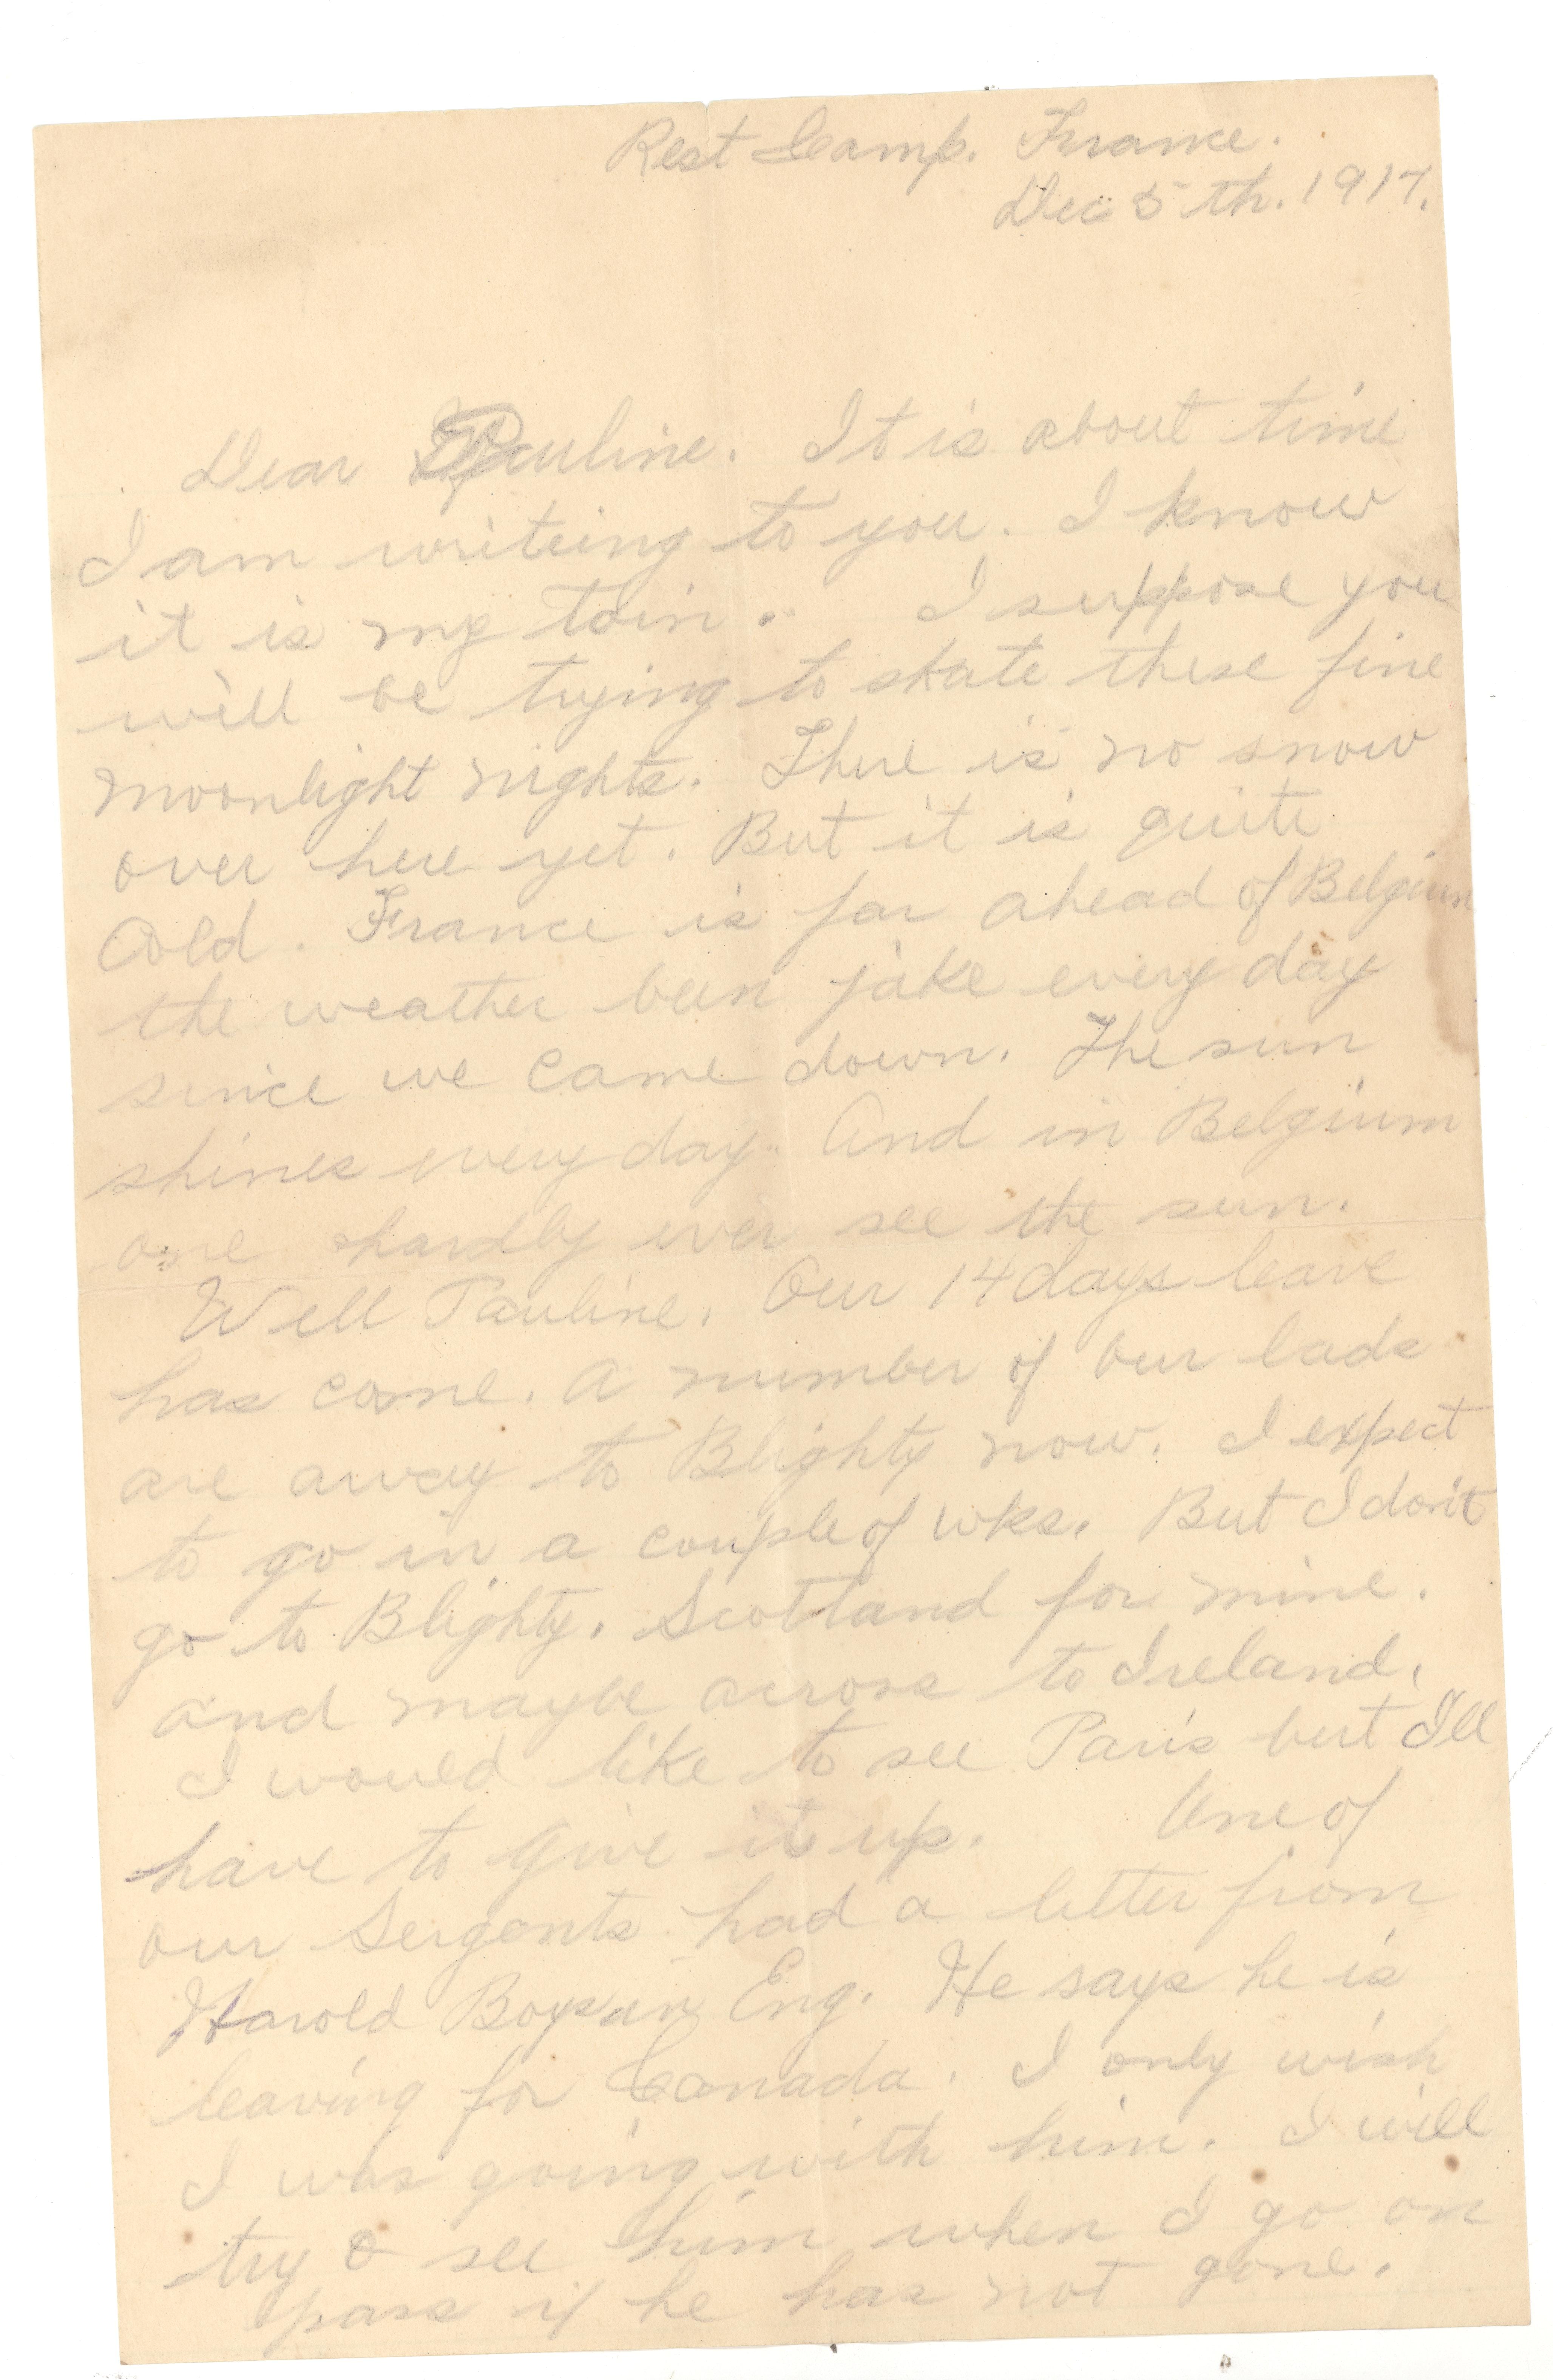 Rest Camp. France.
Dec 5th. 1917.
Dear Pauline. It is about time
I am writeing to you. I know
it is my toin. I suppose you
will be trying to skate these fine
moonlight nights. There is no snow
over here yet. But it is quite
Cold. France is far ahead of Belgium
the weather been jake every day
since we came down. The sun
shines every day. And in Belgium
one hardly ever see the sun.
Well Pauline. Our 14 days leave
has come. A number of our lads
are away to Blighty now. I expect
to go in a couple of wks. But I don't
go to Blighty. Scotland for mine.
and maybe across to Ireland.
I would like to see Paris but I'll
have to give it up. One of
our Sergents had a letter from
Harold Boys in Eng. He says he is
leaving for Canada. I only wish
I was going with him. I will
try & see him when I go on
pass if he has not gone.